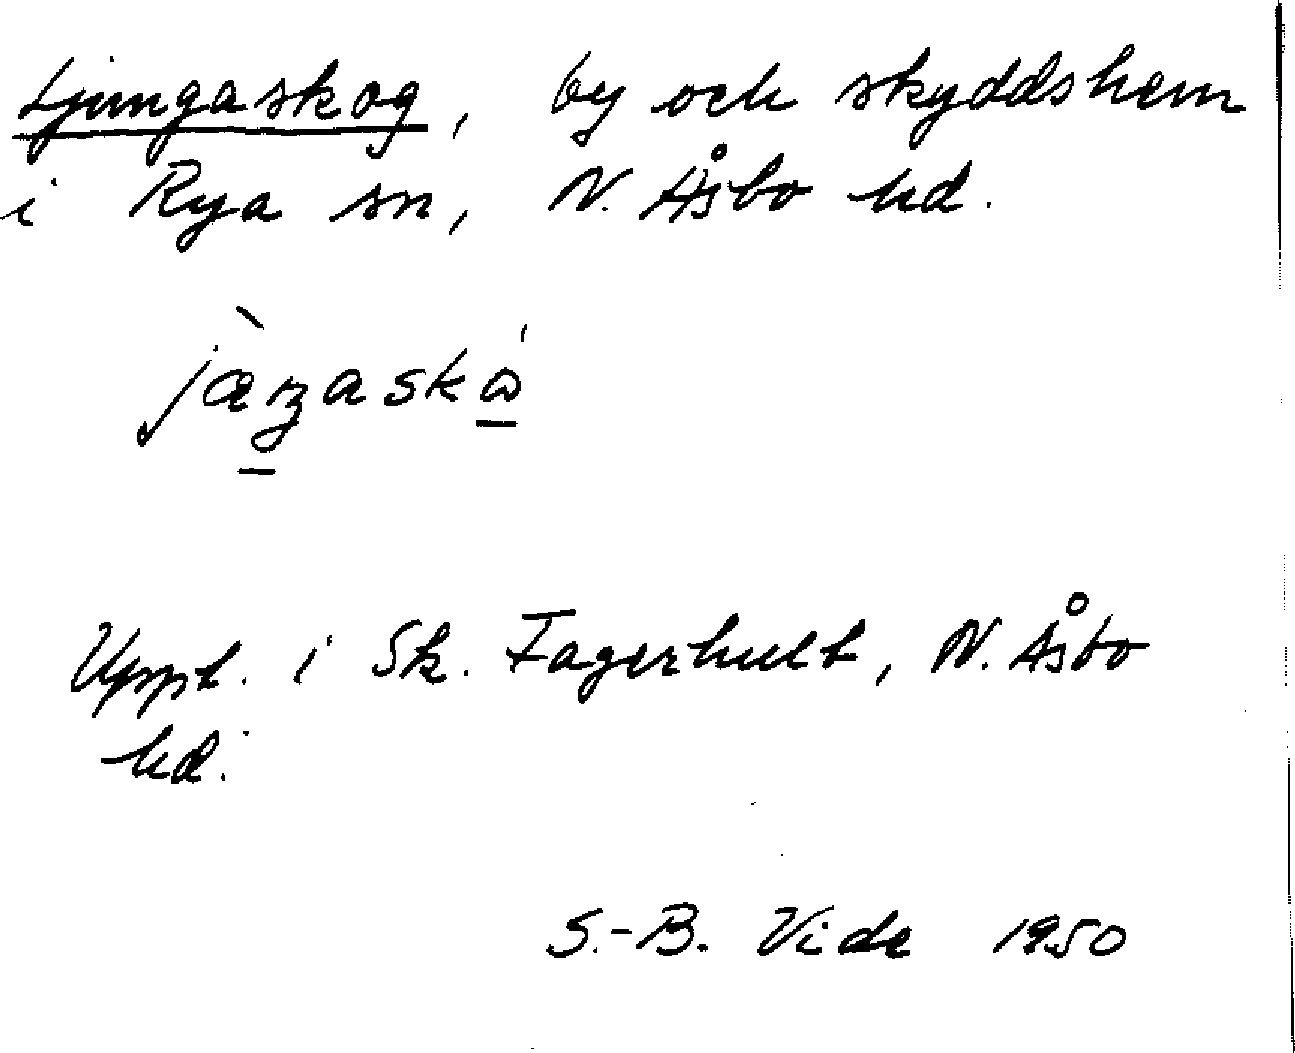 Ljungaskog, by och skyddshem
i Rya sn, N. Åsbo hd.
Uppt. i Sk. Fagerhult, N. Åsbo
hd.
S.-B. Vide 1950